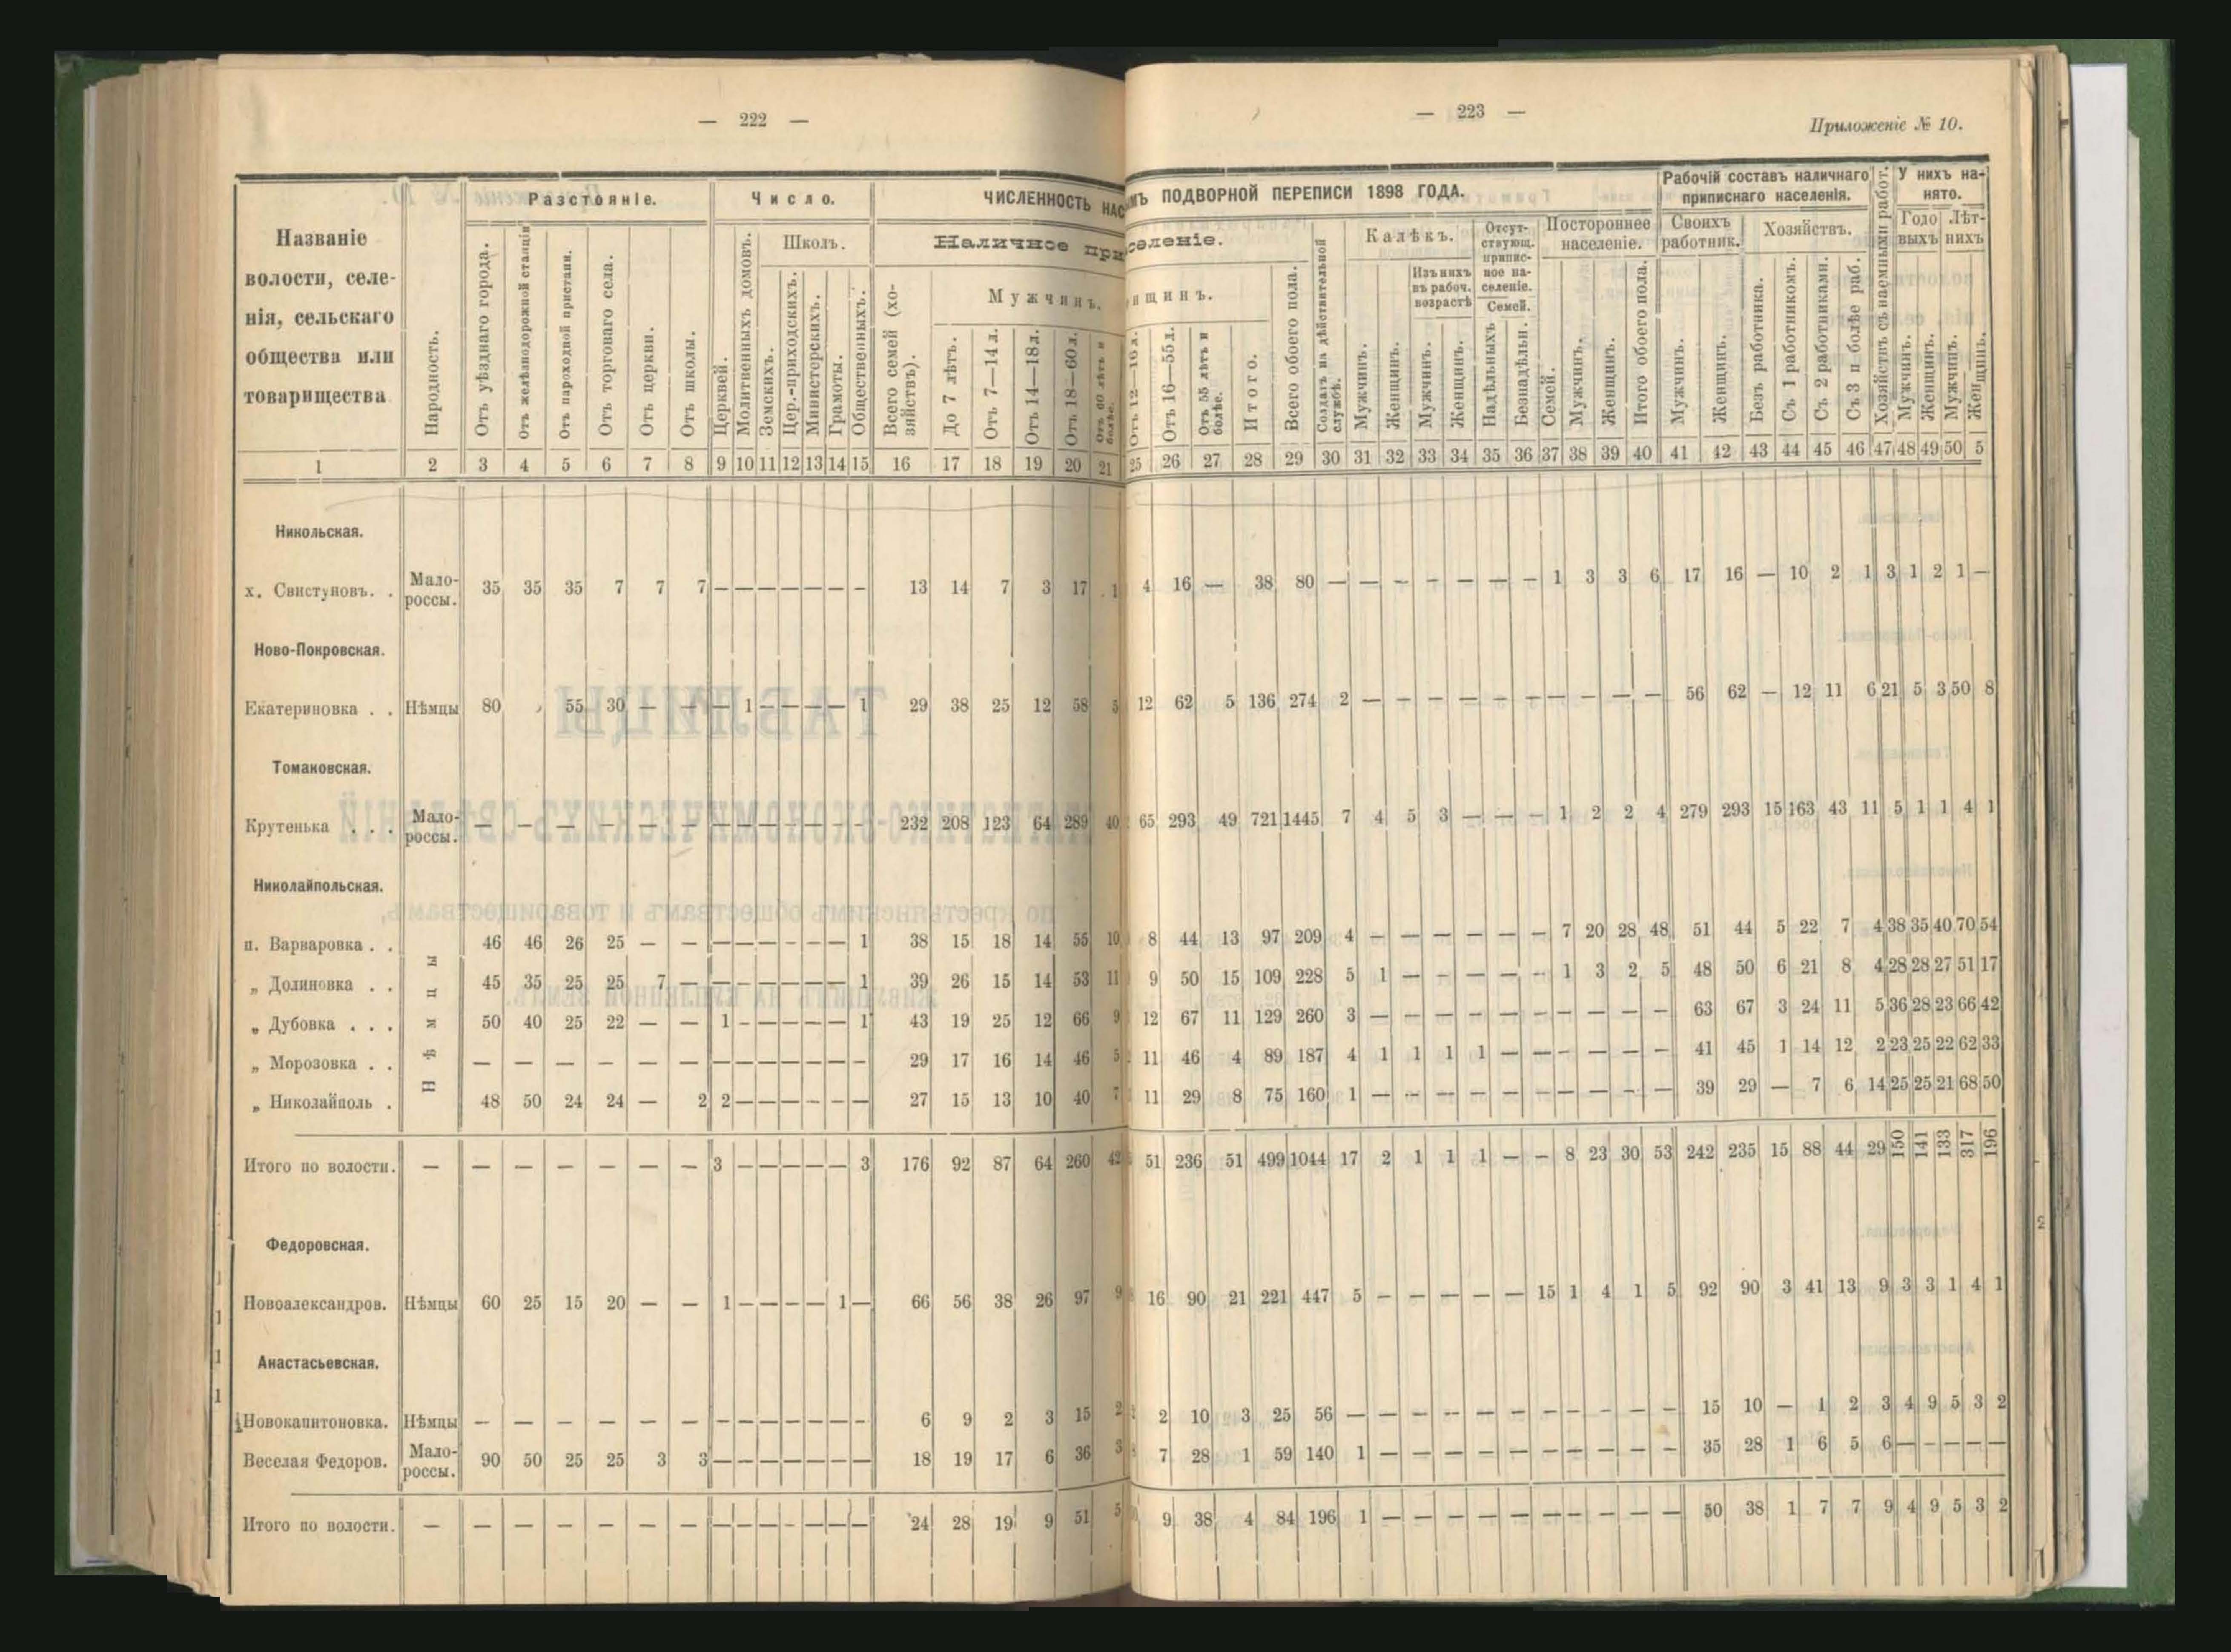 — 222 —
— 223 —
Приложеніе № 10.
Названіе волости, селе-нія, сельскаго общества или товарищества
Народность.
Разстояніе.
Отъ уѣзднаго города.
Отъ желѣзнодорожной станціи
Отъ пароходной пристани.
Отъ торговаго села.
Отъ церкви.
Отъ школы.
Число.
Церквей.
Молитвенныхъ домовъ.
Школъ.
Земскихъ.
Цер.-приходскихъ.
Министерскихъ.
Грамоты.
Общественныхъ.
ЧИСЛЕННОСТЬ НАС
МЪ ПОДВОРНОЙ ПЕРЕПИСИ 1898 ГОДА.
Наличное при
селеніе.
Всего семей (хо-зяйствъ).
Мужчинъ.
До 7 лѣтъ.
Отъ 7—14 л.
Отъ 14—18 л.
Отъ 18—60 л.
Отъ 60 лѣтъ и болѣе.
нщинъ.
Отъ 12—16 л.
Отъ 16—55 л.
Отъ 55 лѣтъ и болѣе.
Итого.
Всего обоего пола.
Солдатъ на дѣйствительной службѣ.
Калѣкъ.
Мужчинъ.
Женщинъ.
Изъ нихъ въ рабоч. возрастѣ
Мужчинъ.
Женщинъ.
Отсут-ствующ. припис-ное на-селеніе.
Семей.
Надѣльныхъ
Безнадѣльн.
Постороннее населеніе.
Семей.
Мужчинъ.
Женщинъ.
Итого обоего пола.
Рабочій составъ наличнаго приписнаго населенія.
Своихъ работник.
Мужчинъ.
Женщинъ.
Хозяйствъ.
Безъ работника.
Съ 1 работникомъ.
Съ 2 работниками.
Съ 3 и болѣе раб.
Хозяйствъ съ наемными работ.
У нихъ на-нято.
Годо выхъ
Лѣт-нихъ
Мужчинъ.
Женщинъ.
Мужчинъ.
Женщинъ.
1 2 3 4 5 6 7 8 9 10 11 12 13 14 15 16 17 18 19 20 21 25 26 27 28 29 30 31 32 33 34 35 36 37 38 39 40 41 42 43 44 45 46 47 48 49 50 5
Никольская.
х. Свистуновъ. . Мало-россы. 35 35 35 7 7 7 — — — — — — — 13 14 7 3 17 1 4 16 — 38 80 — — — — — — — 1 3 3 6 17 16 — 10 2 1 3 1 2 1 —
Ново-Покровская.
Екатериновка . . Нѣмцы 80 55 30 — — — 1 — — — — 1 29 38 25 12 58 5 12 62 5 136 274 2 — — — — — — — — — — 56 62 — 12 11 6 21 5 3 50 8
Томаковская.
Крутенька . . . Мало-россы. — — — — — — — — — — — — — 232 208 123 64 289 40 65 293 49 721 1445 7 4 5 3 — — — 1 2 2 4 279 293 15 163 43 11 5 1 1 4 1
Николайпольская.
Нѣмцы
п. Варваровка . . 46 46 26 25 — — — — — — — — 1 38 15 18 14 55 10 8 44 13 97 209 4 — — — — — — 7 20 28 48 51 44 5 22 7 4 38 35 40 70 54
„ Долиновка . . 45 35 25 25 7 — — — — — — — 1 39 26 15 14 53 11 9 50 15 109 228 5 1 — — — — — 1 3 2 5 48 50 6 21 8 4 28 28 27 51 17
„ Дубовка . . . 50 40 25 22 — — 1 — — — — — 1 43 19 25 12 66 9 12 67 11 129 260 3 — — — — — — — — — — 63 67 3 24 11 5 36 28 23 66 42
„ Морозовка . . — — — — — — — — — — — — — 29 17 16 14 46 5 11 46 4 89 187 4 1 1 1 1 — — — — — — 41 45 1 14 12 2 23 25 22 62 33
„ Николайполь . 48 50 24 24 — 2 2 — — — — — — 27 15 13 10 40 7 11 29 8 75 160 1 — — — — — — — — — — 39 29 — 7 6 14 25 25 21 68 50
Итого по волости. — — — — — — — 3 — — — — — 3 176 92 87 64 260 42 51 236 51 499 1044 17 2 1 1 1 — — 8 23 30 53 242 235 15 88 44 29 150 141 133 317 196
Федоровская.
Новоалександров. Нѣмцы 60 25 15 20 — — 1 — — — — 1 — 66 56 38 26 97 9 16 90 21 221 447 5 — — — — — 15 1 4 1 5 92 90 3 41 13 9 3 3 1 4 1
Анастасьевская.
Новокапитоновка. Нѣмцы — — — — — — — — — — — — — 6 9 2 3 15 2 2 10 3 25 56 — — — — — — — — — — — 15 10 — 1 2 3 4 9 5 3 2
Веселая Федоров. Мало-россы. 90 50 25 25 3 3 — — — — — — — 18 19 17 6 36 3 7 28 1 59 140 1 — — — — — — — — — — 35 28 1 6 5 6 — — — — —
Итого по волости. — — — — — — — — — — — — — — 24 28 19 9 51 5 9 38 4 84 196 1 — — — — — — — — — — 50 38 1 7 7 9 4 9 5 3 2